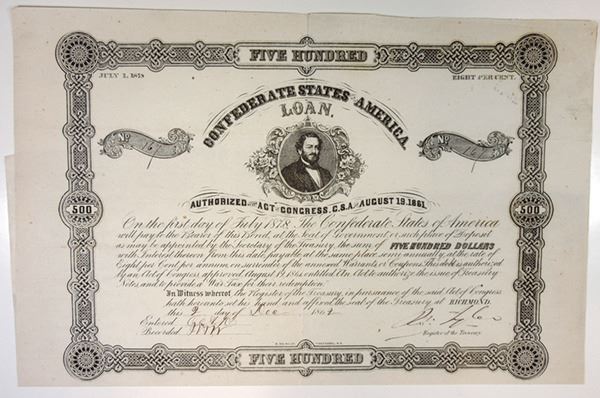 FIVE HUNDRED
JULY 1, 1878
EIGHT PER CENT.
CONFEDERATE STATES OF AMERICA.
LOAN.
No
No
AUTHORIZED BY THE ACT OF CONGRESS, C.S.A. OF AUGUST 19, 1861.
On the first day of July 1878, The Confederate States of America
will pay to the Bearer of this Bond, at the Seat of Government, or such place of Deposit
as may be appointed by the Secretary of the Treasury, the sum of FIVE HUNDRED DOLLARS
with Interest thereon from this date, payable at the same place semi-annually, at the rate of
Eight Per Cent per annum, on surrender of the annexed Warrants or Coupons. This debt is authorized
by an Act of Congress approved August 19, 1861, entitled An Act to authorize the issue of Treasury
Notes and to provide a War Tax for their redemption.
500
500
In Witness whereof, the Register of the Treasury, in pursuance of the said Act of Congress
hath hereunto set his hand and affixed the seal of the Treasury, at RICHMOND,
this 2 day of Dec 1862
Entered
Recorded
Register of the Treasury
FIVE HUNDRED